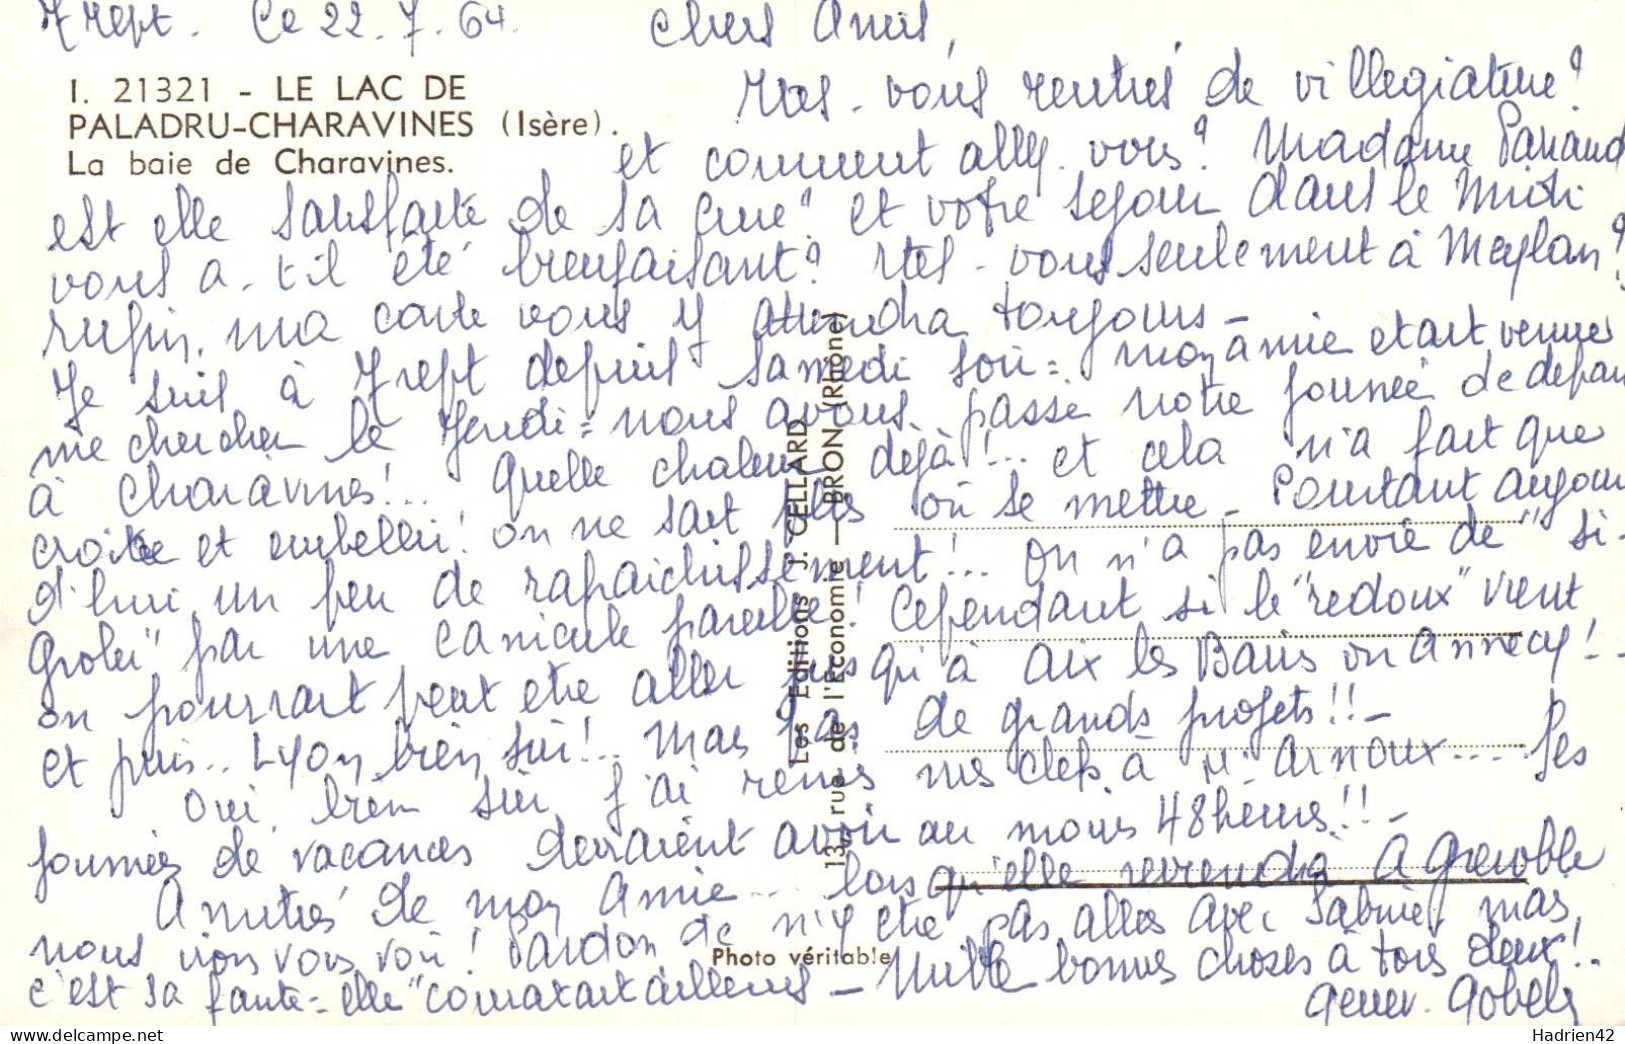 Trept. Ce 22.7.64. Chers Amis,
I. 21321 - LE LAC DE
PALADRU-CHARAVINES (Isère).
La baie de Charavines.
Etes-vous rentrés de villegiature?
et comment allez-vous? Madame
est elle satisfaite de sa cure? et votre sejour dans le Midi
vous a-t-il été bienfaisant? Etes-vous seulement à Meylan?
Enfin, ma carte vous y attendra toujours -
Je suis à Trept depuis Samedi soir = mon amie etait venue
me chercher le Jeudi = nous avons passé notre journée de depart
à Charavines!.. Quelle chaleur déjà!... et cela n'a fait que
croitre et embellir! on ne sait plus où se mettre - Pourtant aujour
d'hui un peu de rafraichissement!... On n'a pas envie de "si-
groler" par une canicule pareille! Cependant si le "redoux" vient
on pourrait peut etre aller jusqu'à Aix les Bains ou Annecy!..
et puis.. Lyon, bien sûr!.. Mais pas de grands projets!! -
Oui, bien sûr, j'ai remis mes clefs à M. Arnoux.... Les
journées de vacances devraient avoir au moins 48 heures!! -
Amitiés de mon Amie... lorsqu'elle reviendra à Grenoble
nous irons vous voir! Pardon de n'y etre pas allés avec mais,
c'est sa faute = elle ailleurs - Mille bonnes choses à tous deux!
Genev. Gobely
Les Editions J. CELLARD
13, rue de l'Economie — BRON (Rhône)
Photo véritable
Hadrien42